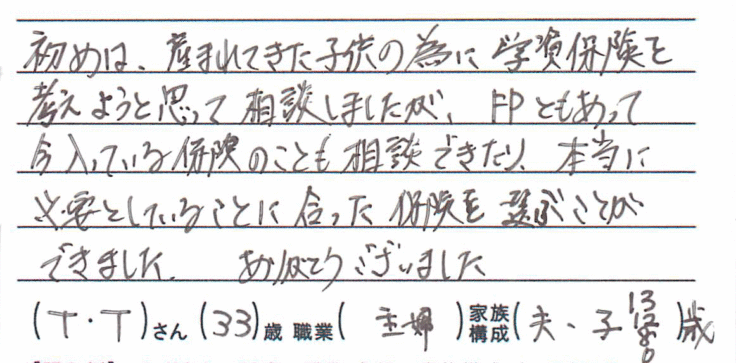 初めは、産まれてきた子供の為に学資保険を
考えようと思って相談しましたが、FPともあって
今入っている保険のことも相談できたり、本当に
必要としていることに合った保険を選ぶことが
できました。 ありがとうございました
(T・T)さん(33)歳 職業(主婦)家族構成(夫・子 13 12 8 0)歳